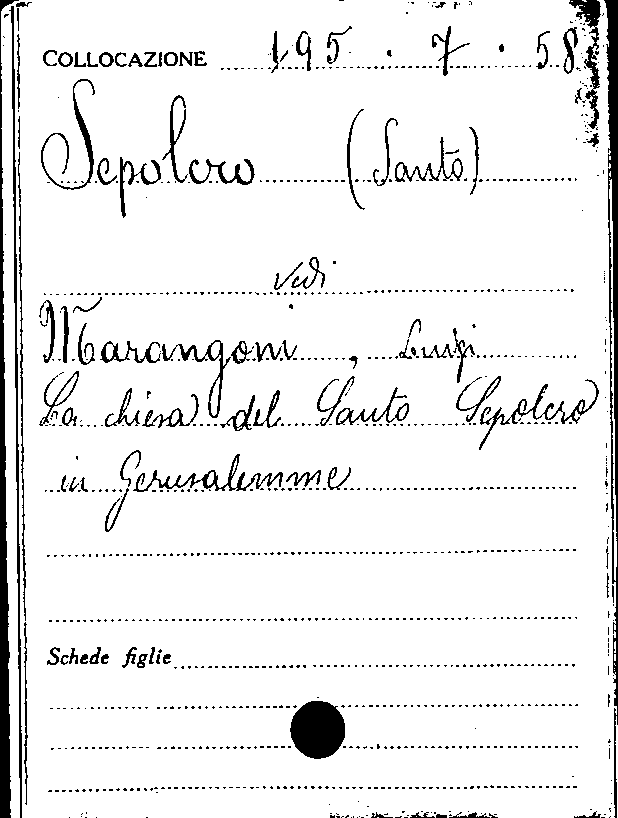 COLLOCAZIONE 195 . 7 . 58
Sepolcro (Santo)
vedi
Marangoni, Luigi
La chiesa del Santo Sepolcro
in Gerusalemme
Schede figlie